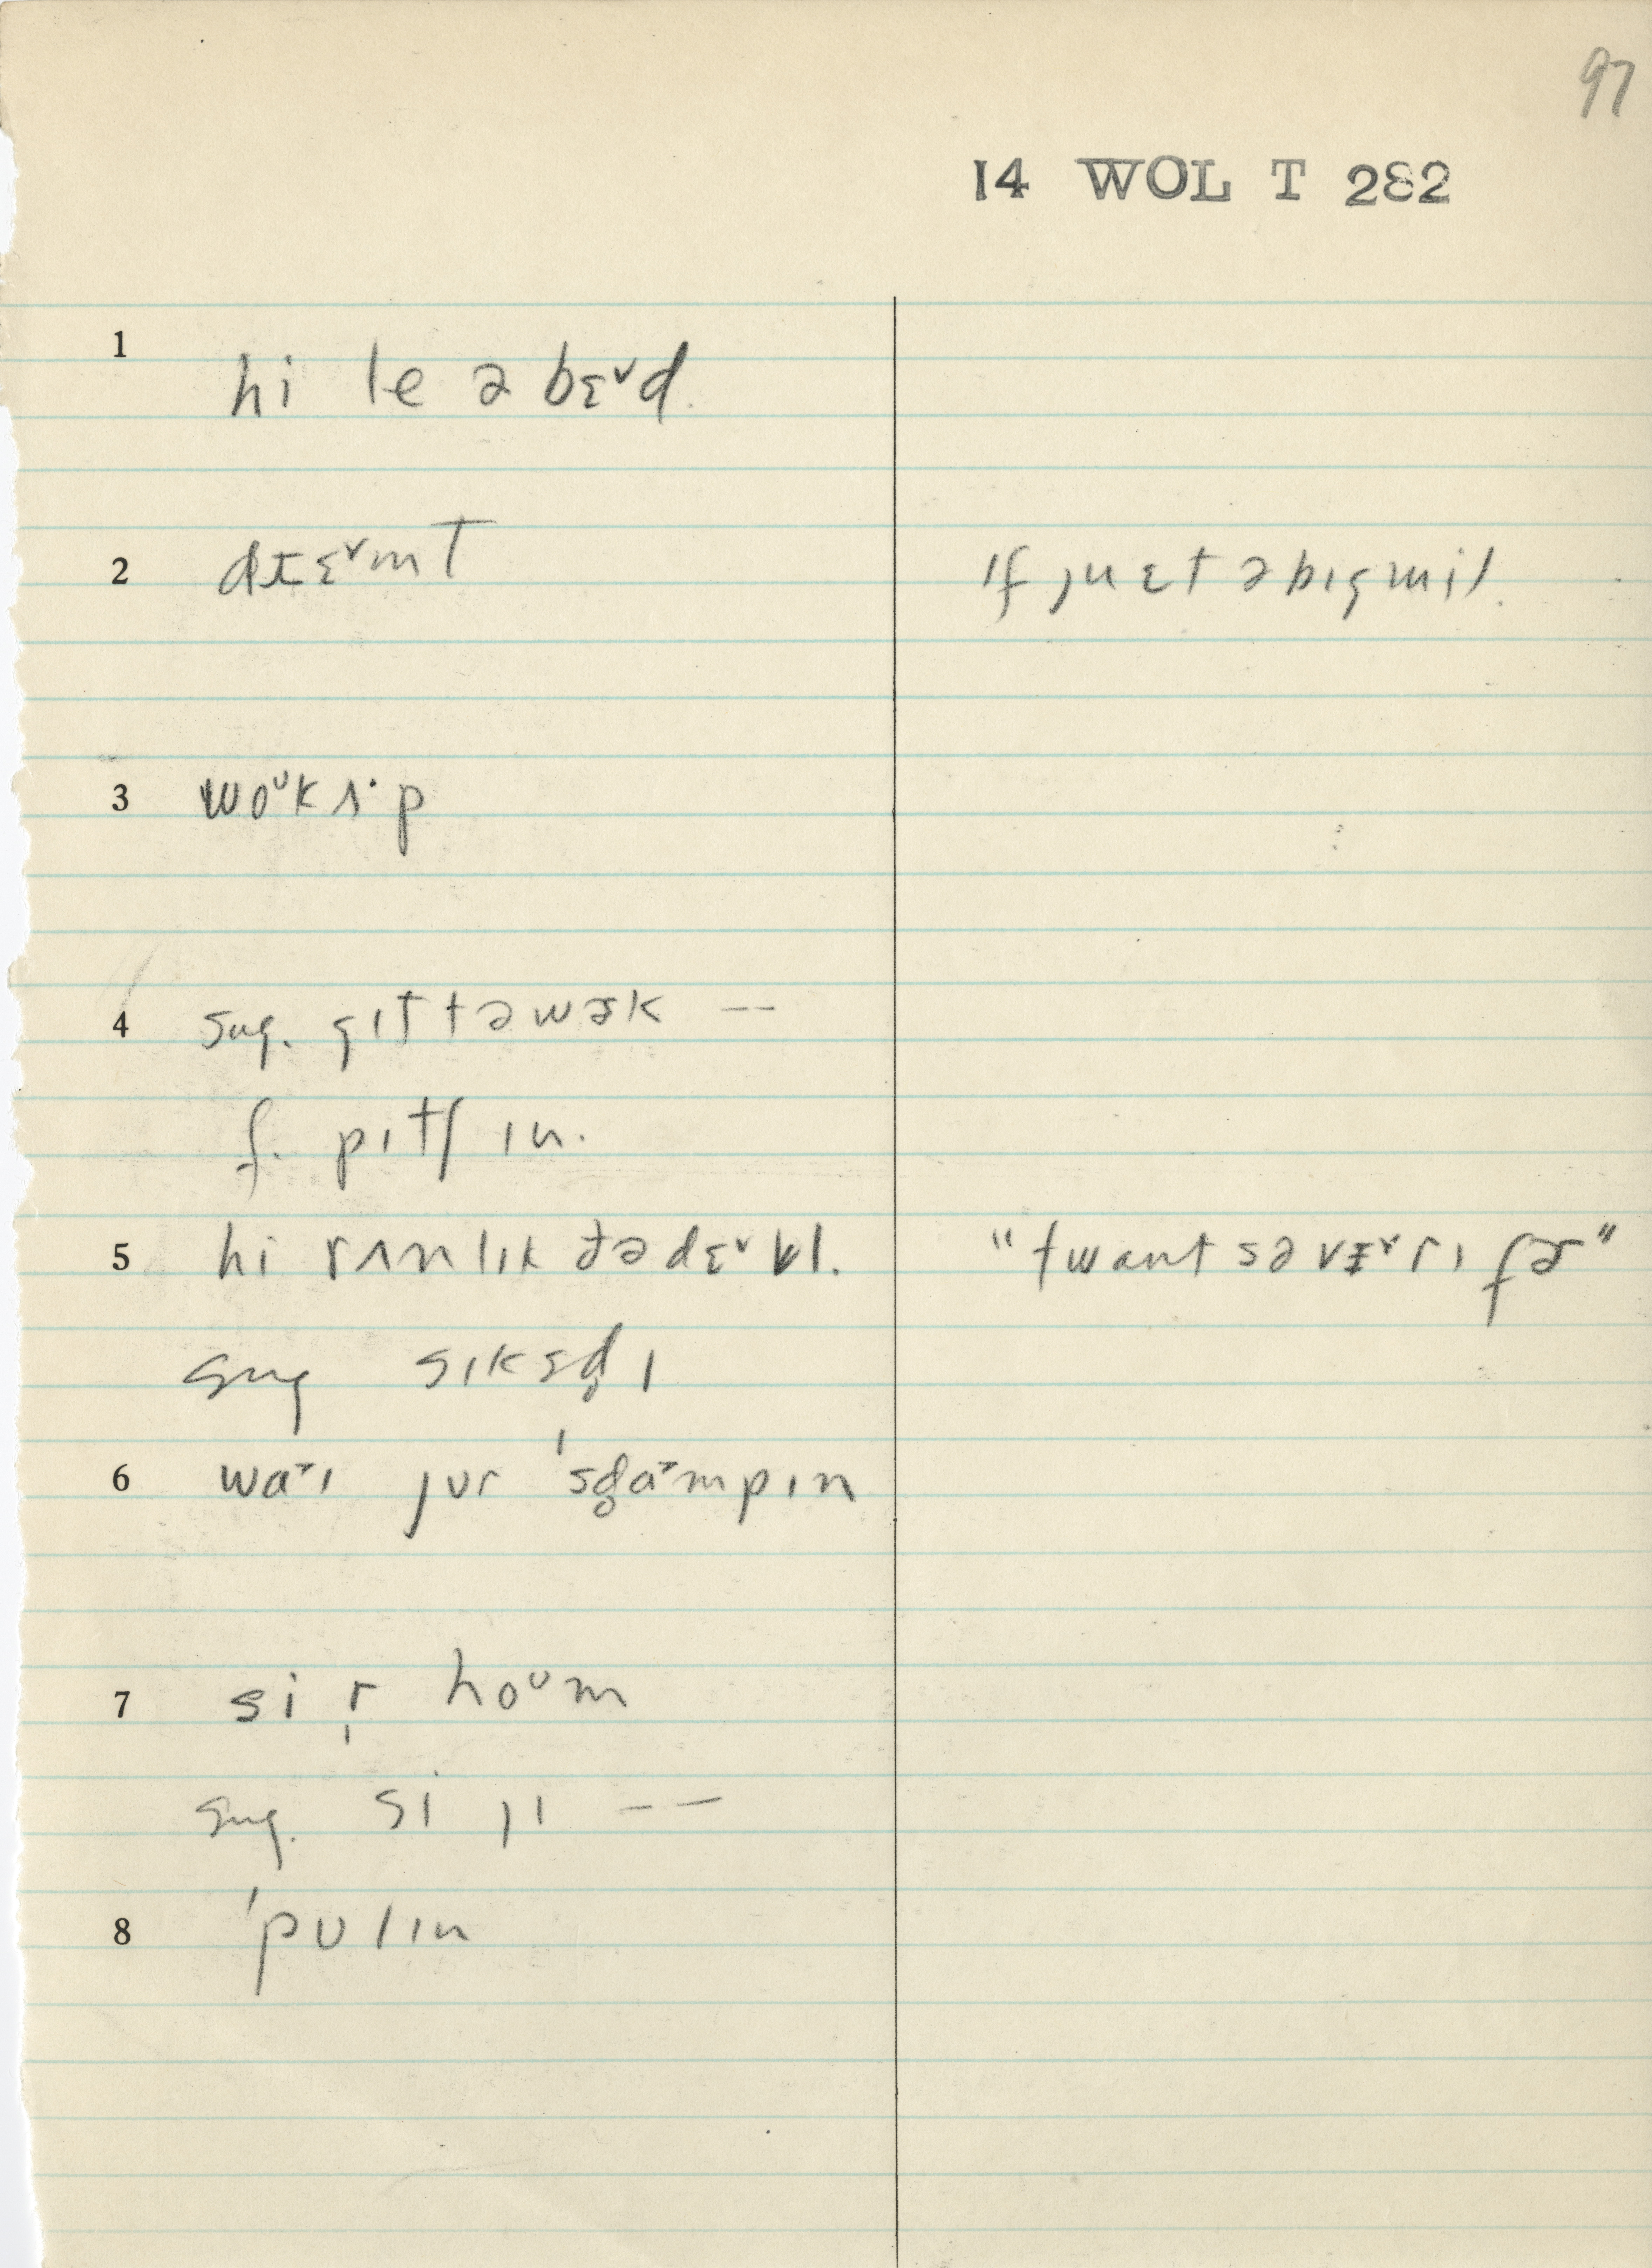 97
14 WOL T 282
1 hi le ə bɛ˅d.
2 dɪɛ˅mT ɪf ju ɛt ə bɪg mil.
3 woᴜk ʌ·p
4 sug. gɪt tə wɚk --
f. pɪtʃ ɪn.
5 hi rʌnlɪk ðə dɛ˅vl. "twant sə vɛ˅rɪ fɚ"
sug sɪksd̥ɪ
6 wa˕ɪ jʊr ˈsg̥a˕mpɪn
7 si r̩ hoᴜm
sug. si jɪ --
8 ˈpʊlɪn